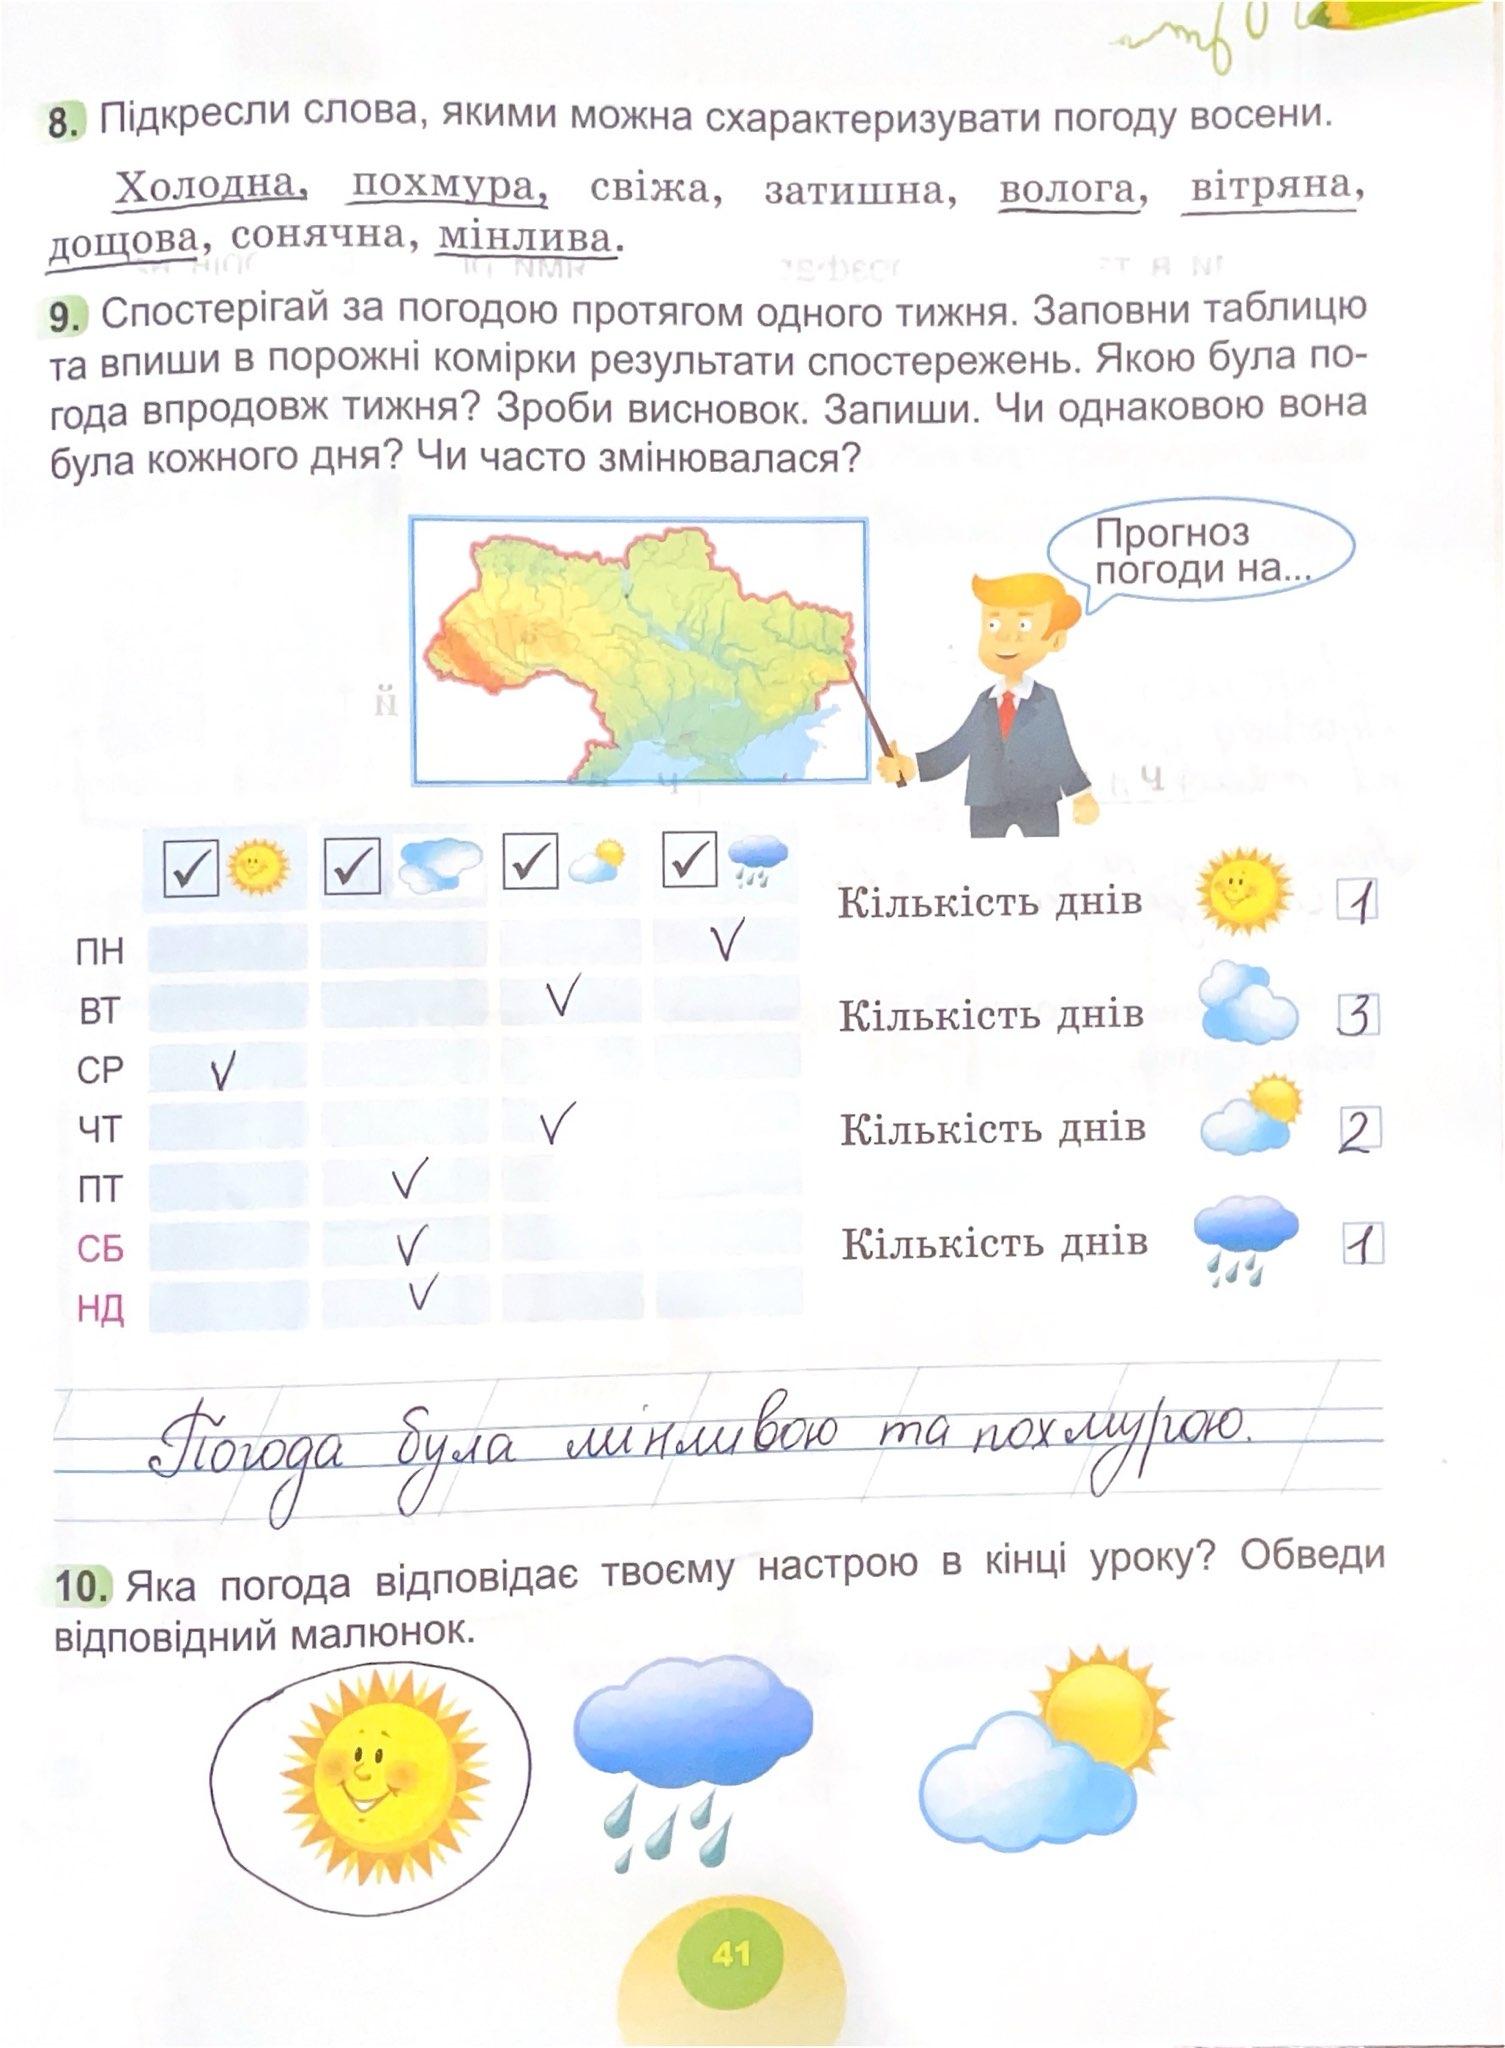 8. Підкресли слова, якими можна схарактеризувати погоду восени.
Холодна, похмура, свіжа, затишна, волога, вітряна,
дощова, сонячна, мінлива.
9. Спостерігай за погодою протягом одного тижня. Заповни таблицю
та впиши в порожні комірки результати спостережень. Якою була по-
года впродовж тижня? Зроби висновок. Запиши. Чи однаковою вона
була кожного дня? Чи часто змінювалася?
Прогноз
погоди на...
ПН
ВТ
СР
ЧТ
ПТ
СБ
НД
Кількість днів 1
Кількість днів 3
Кількість днів 2
Кількість днів 1
Погода була мінливою та похмурою.
10. Яка погода відповідає твоєму настрою в кінці уроку? Обведи
відповідний малюнок.
41